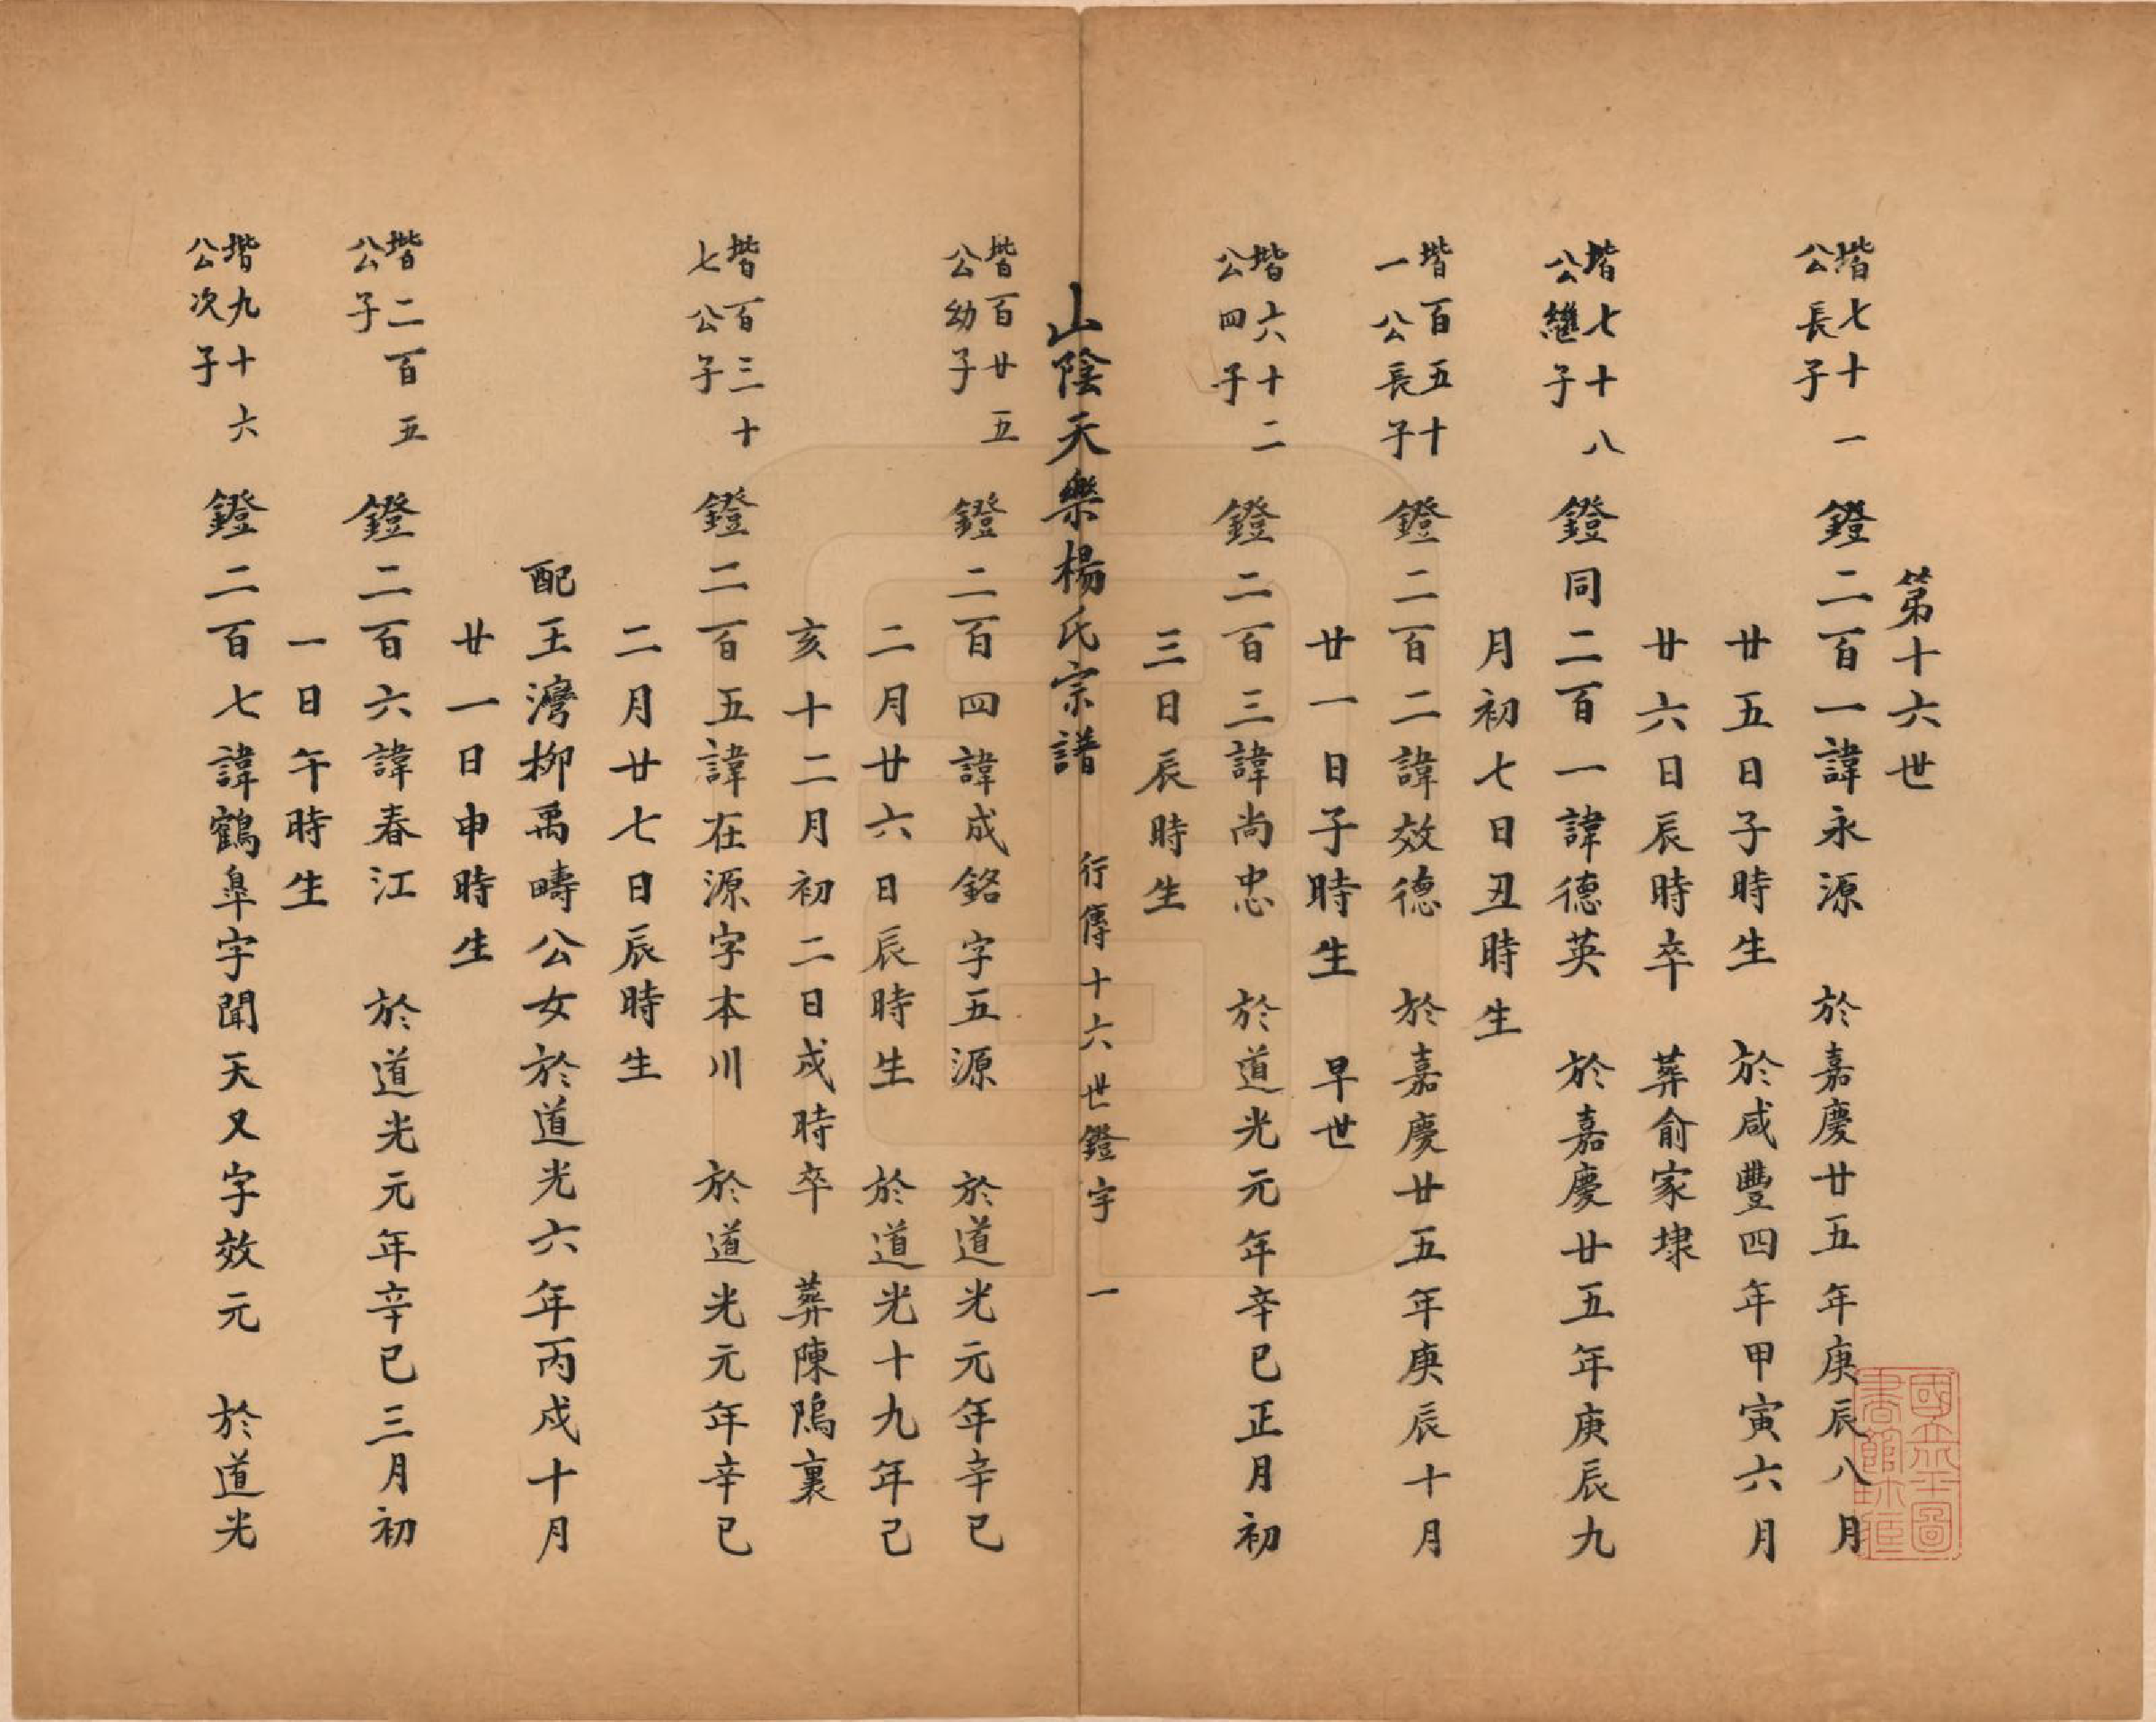 第十六世
堦七十一公長子 鐙二百一諱永源 於嘉慶廿五年庚辰八月
廿五日子時生 於咸豐四年甲寅六月
廿六日辰時卒 葬俞家埭
堦七十八公繼子 鐙同二百一諱德英 於嘉慶廿五年庚辰九
月初七日丑時生
堦百五十一公長子 鐙二百二諱效德 於嘉慶廿五年庚辰十月
廿一日子時生 早世
堦六十二公四子 鐙二百三諱尚忠 於道光元年辛巳正月初
三日辰時生
山陰天樂楊氏宗譜 行傳十六世鐙字 一
堦百廿五公幼子 鐙二百四諱成銘字五源 於道光元年辛巳
二月廿六日辰時生 於道光十九年己
亥十二月初二日戌時卒 葬陳隖裏
堦百三十七公子 鐙二百五諱在源字本川 於道光元年辛巳
二月廿七日辰時生
配王灣柳禹疇公女於道光六年丙戌十月
廿一日申時生
堦二百五公子 鐙二百六諱春江 於道光元年辛巳三月初
一日午時生
堦九十六公次子 鐙二百七諱鶴臯字聞天又字效元 於道光
國立北平圖書館收藏